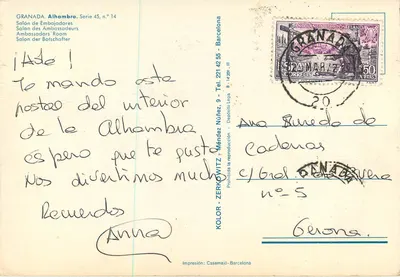 GRANADA. Alhambra. Serie 45, n.° 14
Salon de Embajadores
Salon des Ambassadeurs
Ambassadors' Room
Salon der Botschafter
¡Hola!
Te mando esta
postal del interior
de la Alhambra
espero que te guste
Nos divertimos mucho
Recuerdos
Anna
KOLOR - ZERKOWITZ - Méndez Núñez, 9 - Tel. 221 42 55 - Barcelona
Prohibida la reproducción. - Depósito Legal B.
Impresión: Casamajó-Barcelona
GRANADA
MAR
20
GRANADA
Ana Buredo de
Cadenas
c/ Gral. Rivera
nº-5
Gerona.